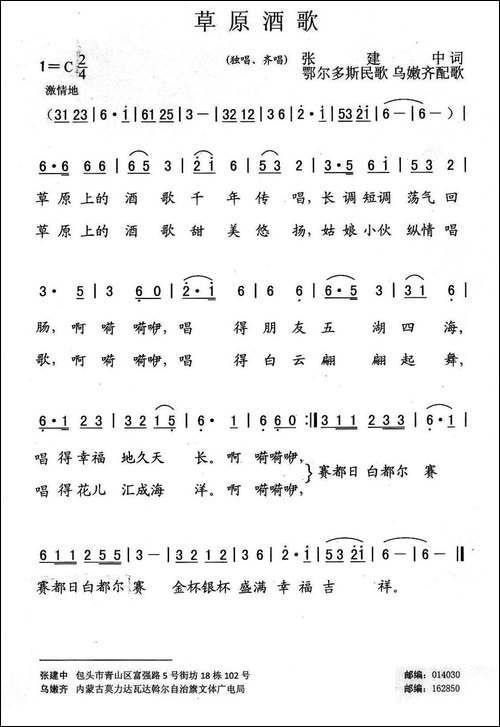 草原酒歌
1=C 2/4
(独唱、齐唱) 张 建 中 词
激情地 鄂尔多斯民歌 乌嫩齐配歌
(31 23 | 6·i | 61 25 | 3 — | 32 12 | 3 6 | 2·i | 53 2i | 6 — | 6 —) |
6·6 6 6 | 65 3 | 2i 6 | 53 2 | 3·5 6i | 53 2 |
草 原 上的 酒 歌 千 年 传 唱, 长 调 短调 荡气 回
草 原 上的 酒 歌 甜 美 悠 扬, 姑 娘 小伙 纵情 唱
3· 5 | 3 60 | 2·i | 6 6 | 6·5 3 5 | 31 6 |
肠, 啊 嗬 嗬咿, 唱 得 朋 友 五 湖 四 海,
歌, 啊 嗬 嗬咿, 唱 得 白 云 翩 翩 起 舞,
6·1 23 | 32 15 | 6· 1 | 6 60 :| 3 11 233 | 6·1 |
唱 得 幸福 地久天 长。啊 嗬嗬咿, 赛都日 白都尔 赛
唱 得 花儿 汇成海 洋。啊 嗬嗬咿,
6 11 2 55 | 3 — | 32 12 | 3 53 | 2·i 23 | 3 6 | 2·i | 53 2i | 6 — | 6 — ||
赛都日白都尔 赛 金杯银杯 盛满 幸 福 吉 祥。
张建中 包头市青山区富强路 5 号街坊 18 栋 102 号 邮编: 014030
乌嫩齐 内蒙古莫力达瓦达斡尔自治旗文体广电局 邮编: 162850